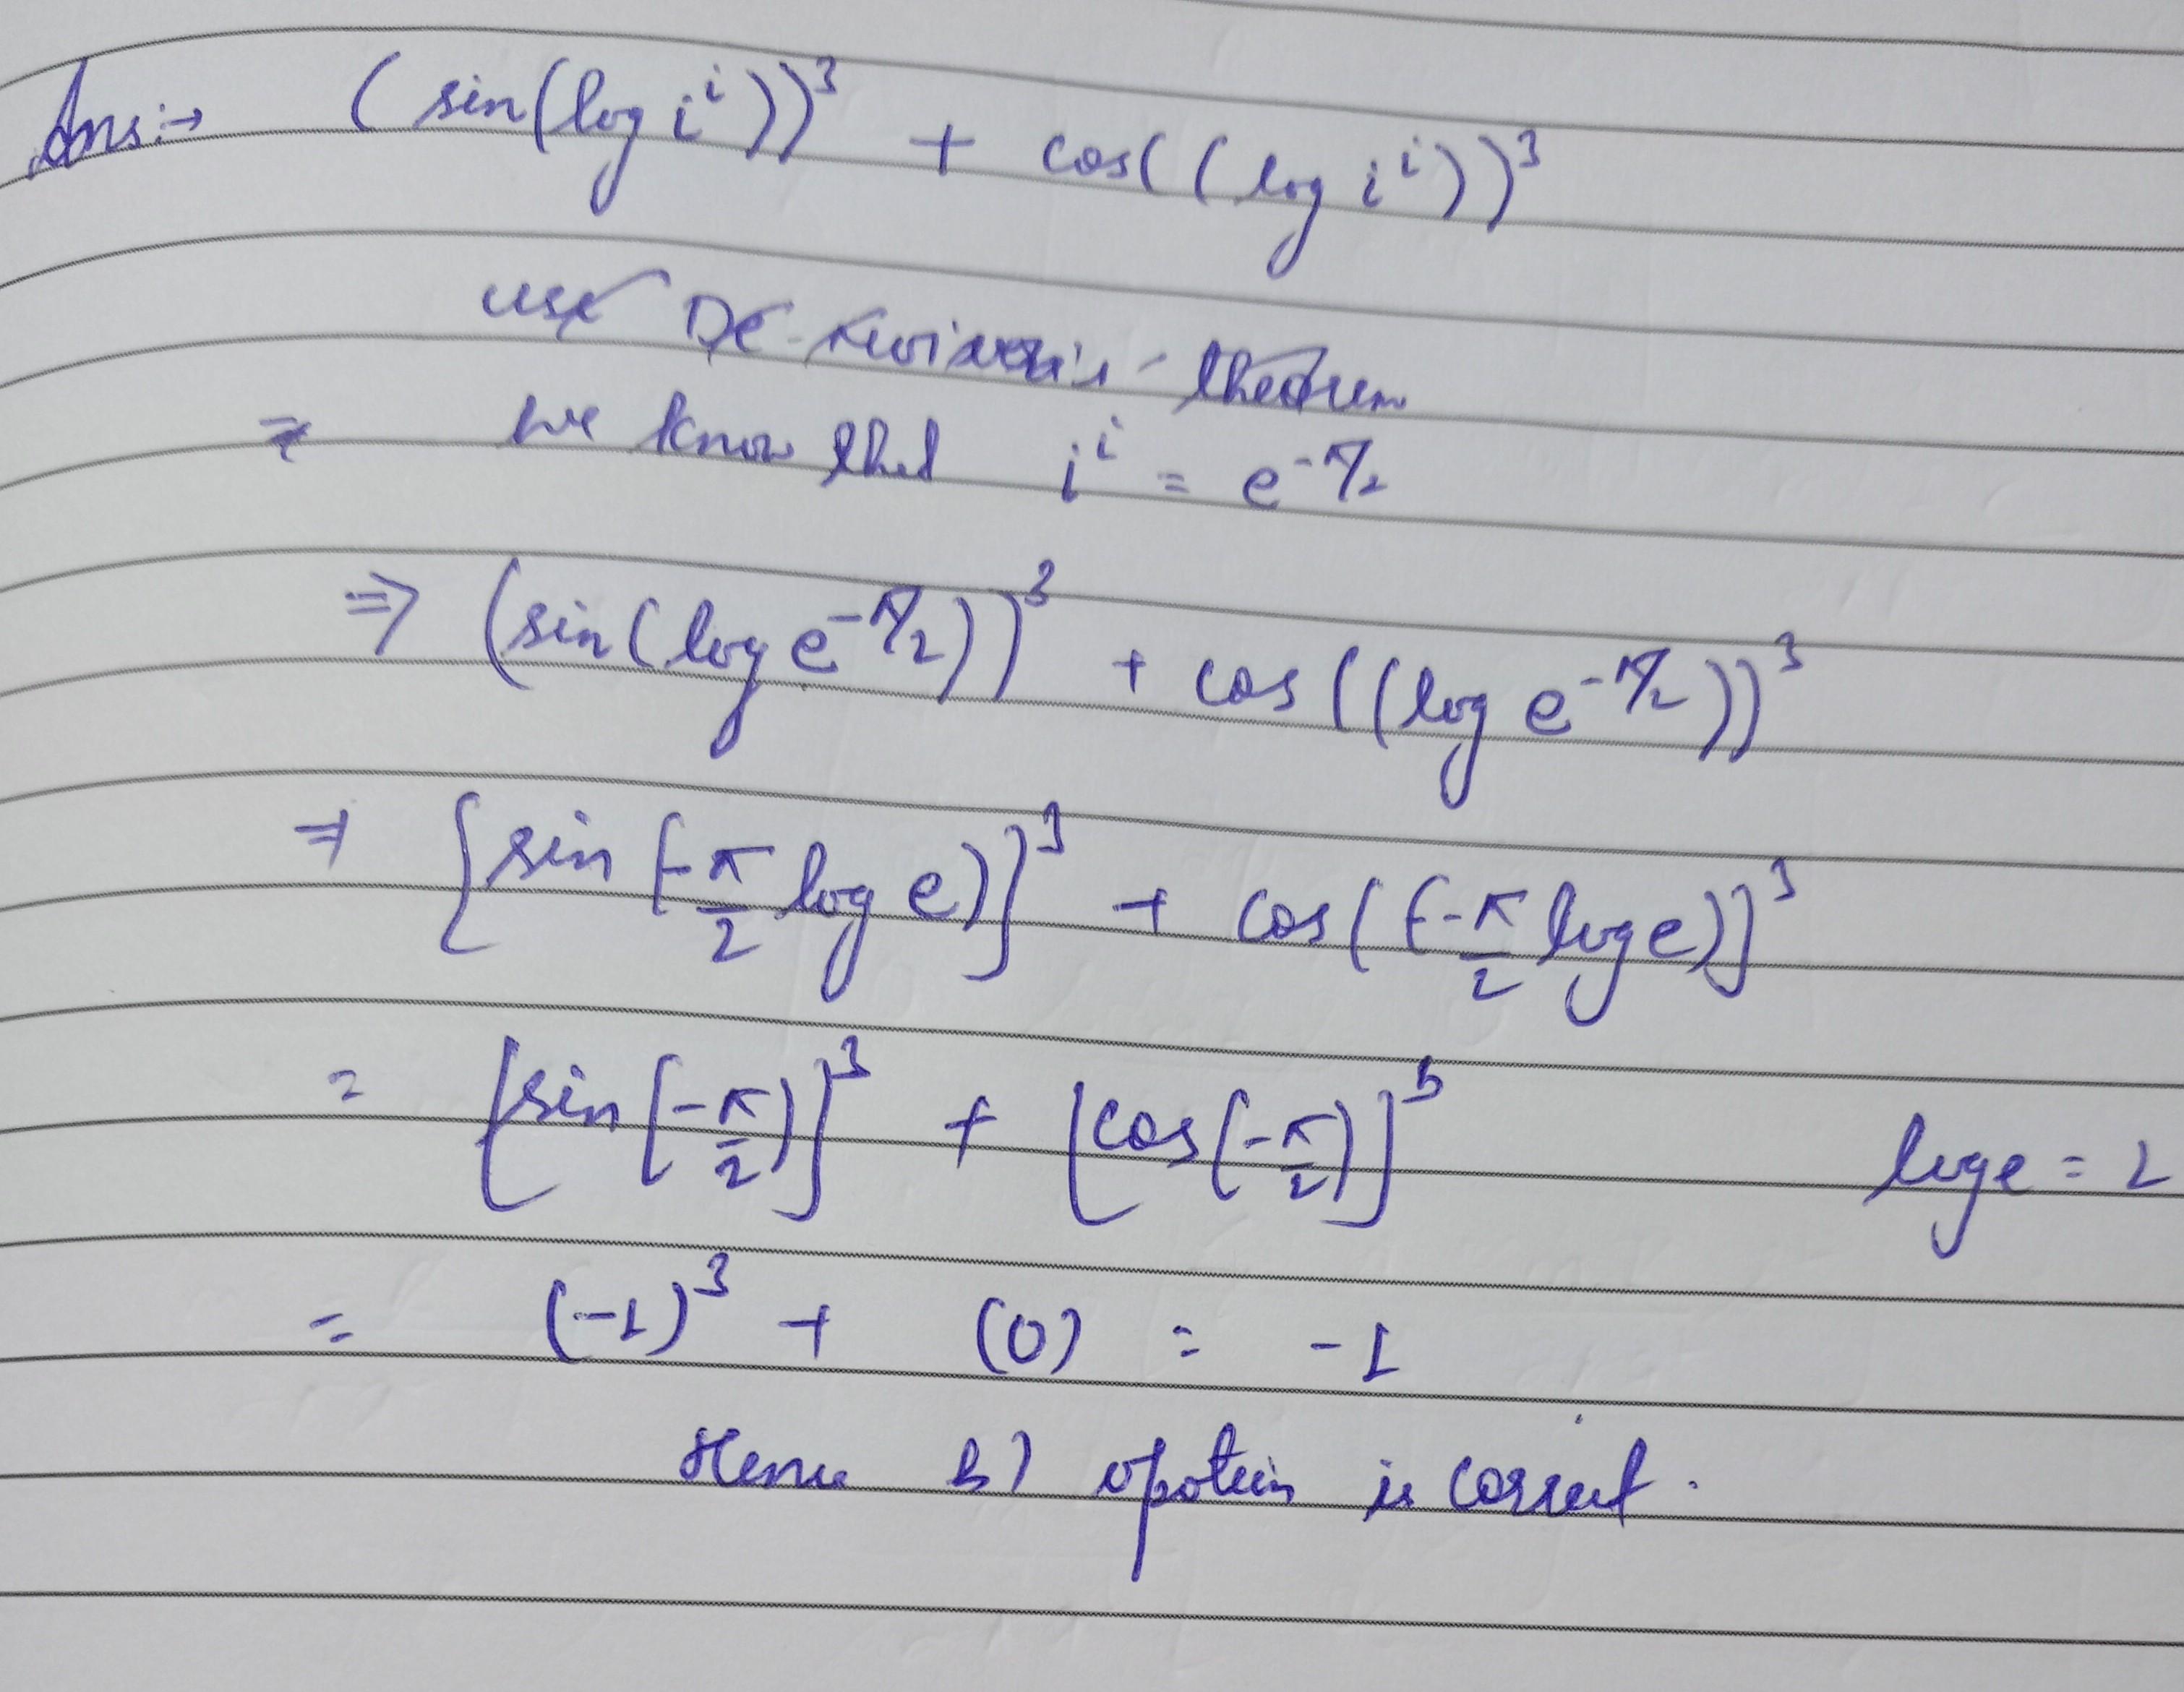 Ans:→ (sin(log i^i))^3 + cos((log i^i))^3
use De-Moivre's theorem
⇒ we know that i^i = e^-π/2
⇒ (sin(log e^-π/2))^3 + cos((log e^-π/2))^3
⇒ {sin(-π/2 log e)}^3 + cos((-π/2 log e)]^3
= [sin[-π/2)]^3 + [cos(-π/2)]^3 log e = 1
= (-1)^3 + (0) = -1
Hence b) opotein is correct.